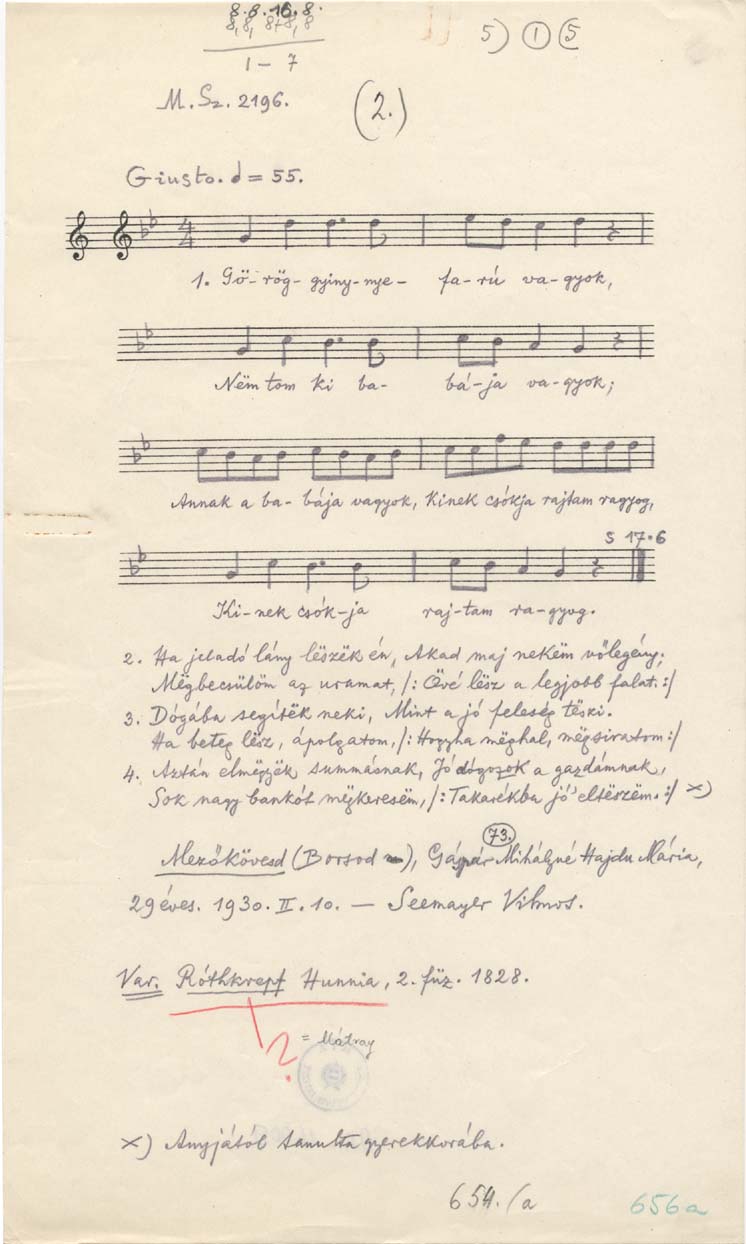 8. 8. 16. 8.
8, 8, 8+8, 8
1 – 7
5) 1 5
M. Sz. 2196.
(2.)
Giusto. = 55.
4
4
1. Gö-rög-gyiny-nye-fa-rú va-gyok,
Nëm tom ki ba-bá-ja va-gyok;
Annak a ba-bája vagyok, kinek csókja rajtam ragyog,
S 17.6
Ki-nek csók-ja raj-tam ra-gyog.
2. Ha jeladó lány lëszëk én, Akad maj nekëm vőlegény;
Mëgbecsülöm az uramat, /: Övé lësz a legjobb falat. :/
3. Dógába segítëk neki, Mint a jó feleség tëszi.
Ha beteg lësz, ápolgatom, /: Hogyha mëghal, mëgsiratom :/
4. Aztán elmëgyëk summásnak, Jó dógozok a gazdámnak,
Sok nagy bankót mëjkeresëm, /: Takarékba jó' eltëszëm. :/ x)
73.
Mezőkövesd (Borsod), Gáspár Mihályné Hajdu Mária,
29 éves. 1930. II. 10. — Seemayer Vilmos.
Var. Róthkrepf Hunnia, 2. füz. 1828.
?
= Mátray
x) Anyjától tanulta gyerekkorába.
654. /a
656a